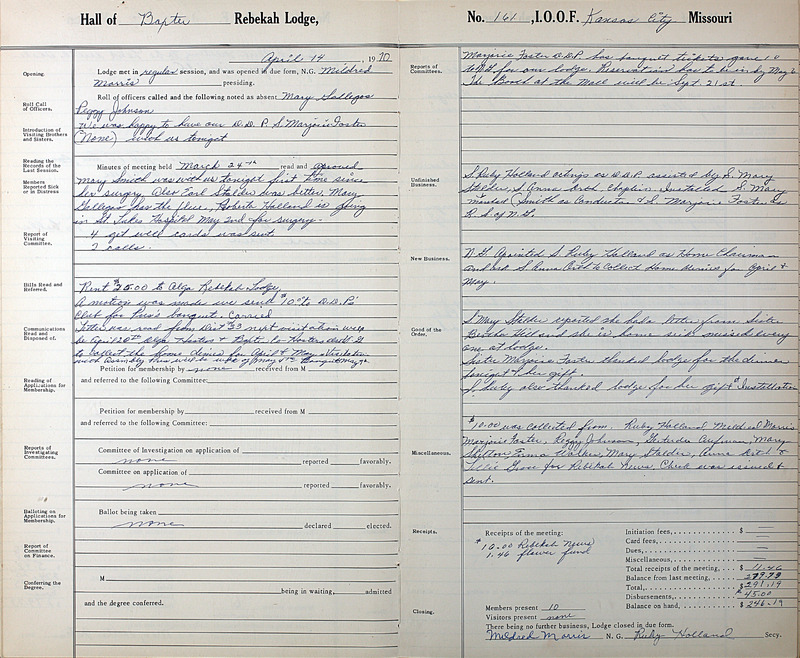 Hall of Baxter Rebekah Lodge,
April 14, 1970
Opening.
Lodge met in regular session, and was opened in due form, N.G. Mildred
Morris presiding.
Roll Call of Officers.
Roll of officers called and the following noted as absent Mary Gallegos
Peggy Johnson
Introduction of Visiting Brothers and Sisters.
We was happy to have our D.D.P. S. Marjorie Foster
(None) with us tonight
Reading the Records of the Last Session.
Minutes of meeting held March 24th read and aproved
Members Reported Sick or in Distress
Mary Smith was with us tonight first time since
her surgery. Also Earl Stalder was better. Mary
Gallegos has the flue. Roberta Holland is going
in St Lukes Hospital May 2nd for surgery.
Report of Visiting Committee.
4 get well cards was sent
2 calls.
Bills Read and Referred.
Rent $25.00 to Alga Rebekah Lodge
A motion was made we send $10.00 to D.D.P.'s
Club for Pres's banquet. Carried
Communications Read and Disposed of.
Letter was read from Dist 33 next visitation will
be April 20th Alga Hostess &
to collect the home denies for April & May. Visitation
with Assembly
Petition for membership by none received from M
Reading of Applications for Membership.
and referred to the following Committee:
Petition for membership by received from M
and referred to the following Committee:
Reports of Investigating Committees.
Committee of Investigation on application of
none reported favorably.
Committee on application of
none reported favorably.
Balloting on Applications for Membership.
Ballot being taken
none declared elected.
Report of Committee on Finance.
Conferring the Degree.
M
being in waiting, admitted
and the degree conferred.
No. 161, I.O.O.F. Kansas City Missouri
Reports of Committees.
Marjorie Foster D.D.P. has banquet tickets gave 10
to N.G. for our lodge. Reservations has to be in by May 6
The Booth at the Mall will be Sept. 21st.
Unfinished Business.
S. Ruby Holland acting as D.D.P. assisted by S. Mary
Stalder, S. Anna Chaplin. Installed S. Mary
Smith as Conductor & S. Marjorie Foster as
R.S. of N.G.
New Business.
N.G. Apointed S. Ruby Holland as Home Chairman
and ask S. Anna to collect Home denies for April &
May.
Good of the Order.
S. Mary Stalder reported she had a letter from Sister
and she is home sick missed every
one at lodge.
Sister Marjorie Foster thanked lodge for the dinner
tonight & her gift.
S. Ruby also thanked lodge for her gift & Installation
Miscellaneous.
$10.00 was collected from. Ruby Holland, Mildred Morris
Marjorie Foster, Peggy Johnson, Gertrude Mary
Skelton, Emma Walker, Mary Stalder, Anna &
for Rebekah News. Check was issued &
sent.
Receipts.
Receipts of the meeting:
$10.00 Rebekah News
1.46 flower fund
Initiation fees, $ —
Card fees, —
Dues, —
Miscellaneous, —
Total receipts of the meeting, $ 11.46
Balance from last meeting, 279.73
Total, $291.19
Disbursements, $45.00
Balance on hand, $246.19
Members present 10
Visitors present none
Closing.
There being no further business, Lodge closed in due form.
Mildred Morris N. G. Ruby Holland Secy.